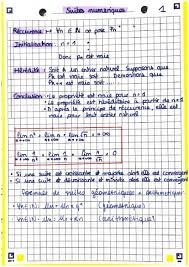 Suites numériques
1
Récurrence : ∀n ∈ ℕ on pose Pn
Initialisation : n = 1
Donc Pn est vraie
Hérédité : Soit k un entier naturel. Supposons que
Pk est vraie soit ... Démontrons que
Pk+1 est vraie soit ...
Conclusion : La propriété est vraie pour n = 1
La propriété est héréditaire à partir de n = 1
D'après le principe de récurrence, Pn est
vraie pour tout entier naturel
lim n² = lim n = lim √n = +∞
n→+∞ n→+∞ n→+∞
lim 1/n² = lim 1/n = lim 1/√n = 0
n→+∞ n→+∞ n→+∞
Si une suite est croissante et majorée alors elle est convergente
Si une suite est décroissante et minorée alors elle est convergente
Formule de suites géométriques et arithmétiques
∀n ∈ ℕ : (géométrique)
∀n ∈ ℕ : (arithmétique)